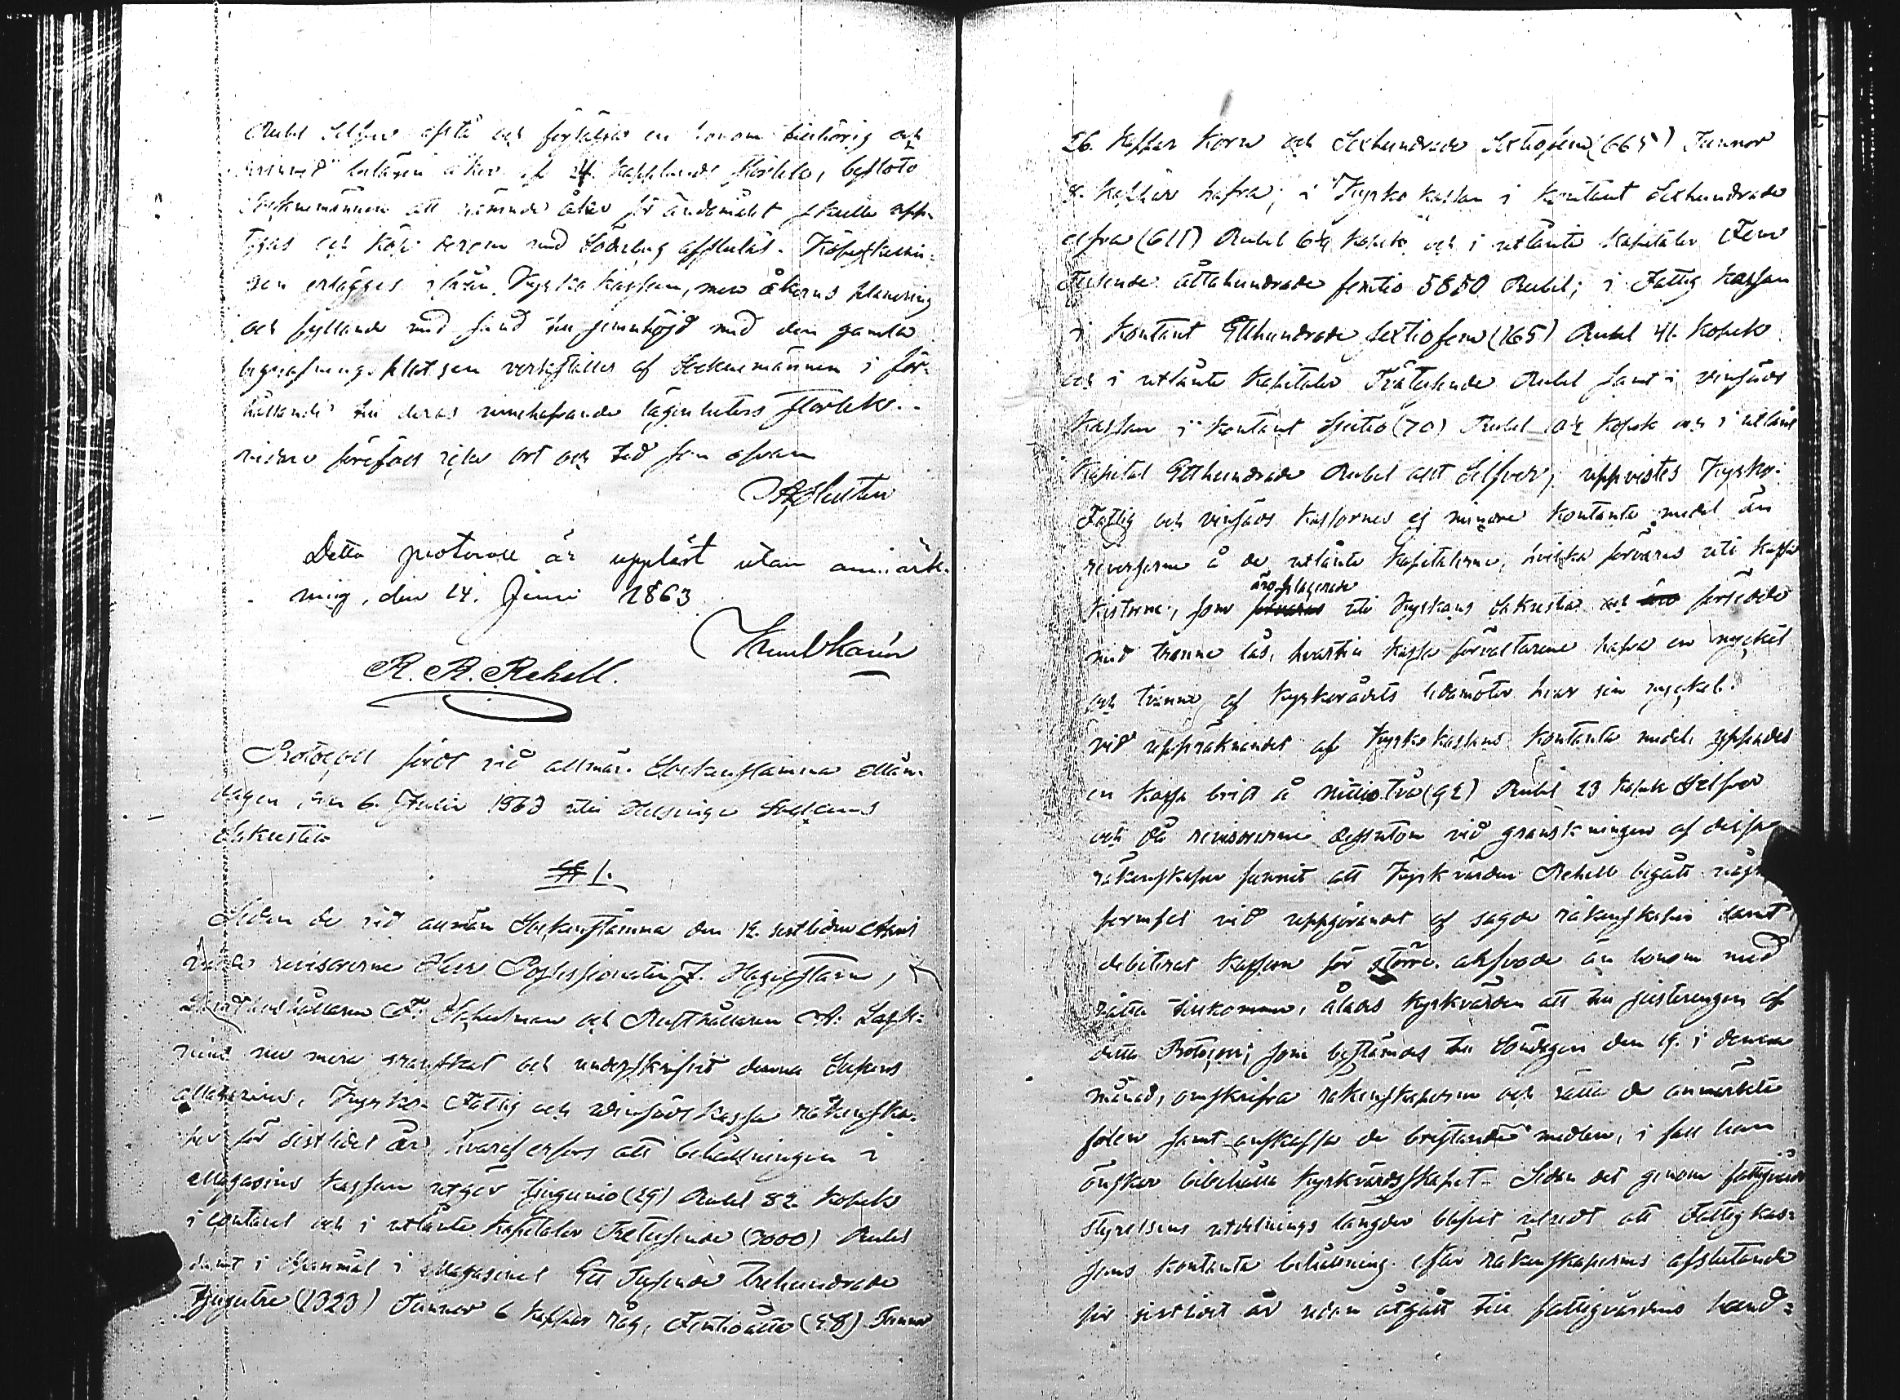 Rubel Silfver afstå och försälja en honom tillhörig och
belägen åker af 4 kappland storlek, beslöto
Socknemännen att nämnde åker för ändamålet skulle upp-
tagas och köp derom med Söderlug afslutas. Köpeskillin-
gen erlägges ifrån Kyrko kassan, men åkerns planering
och fyllande med sand till jemnhöjd med den gamla
begrafnings platsen verkställes af Socknemännen i för-
hållande till deras innehafvande lägenheters storlek.
vidare förefoll icke ort och tid som ofvan
Detta protocoll är uppläst utan anmärk-
ning, den 14. Junii 1863
R. R. Rehell.
Protocoll fördt vid allmän Sockenstämma Mån-
dagen den 6. Julii 1863 uti Helsinge Sockens
Sakristia
§ 1.
Sedan de vid allmän Sockenstämma den 12. sistliden April
valde revisorerne Herr Possessionaten J. Hagelstam,
Landthushållaren F. Schulman och Rusthållaren A:
nu mera granskat och underskrifvit denna Sockens
Magasins, Kyrko- Fattig och vinfäds kassa räkenska-
per för sistlidet år, hvaraf erfors att behållningen i
Magasins kassan utgör tjugunio (29) Rubel 82. kopek
i contant och i utlånte kapitaler Tretusende (3000) Rubel
samt i Spanmål i Magasinet Ett Tusende trehundrade
Tjugutre (1323) Tunnor 6 kappar råg, Femtioåtta (58) Tunnor
26. kappar korn och Sexhundrade Sextiofem (665) Tunnor
8. kappar hafra; i Kyrko kassan i kontant Sexhundrade
elfva (611) Rubel 6½ kopek och i utlånte kapitaler Fem
Tusende åttahundrade femtio 5850 Rubel; i Fattig kassan
i kontant Etthundrade sextiofem (165) Rubel 41. kopek
och i utlånte kapitaler Tvåtusende Rubel samt i vinfäds
kassan i kontant sjutio (70) Rubel 10½ kopek och i utlånt
kapital Etthundrade Rubel allt Silfver, uppvistes Kyrko-
Fattig och vinfäds kassornes ej mindre kontanta medel än
reverserne å de utlånte kapitalerne, hvilka förvaras uti kassa
äro placerade
kistorne, som förvaras uti Kyrkans Sakristia och äro försedde
med trenne lås, hvartill kassa förvaltarene hafva en nyckel
och tvänne af Kyrkorådets ledamöter hvar sin nyckel.
vid uppräknandet af Kyrko kassans kontanta medel, yppades
en kassa brist å nittio två (92) Rubel 23 kopek Silfver
och då revisorerne dessutom vid granskningen af dessa
räkenskaper funnit att Kyrkvärden Rehell begått några
formfel vid uppgörandet af sagde räkenskaper samt
debiterat kassan för större arfvode än honom med
rätta tillkommer, ålades kyrkvärden att till justeringen af
detta Protocoll, som bestämdes till Söndagen den 19. i denna
månad, omskrifva räkenskaperne och rätta de anmärkta
felen samt anskaffa de bristande medlen, i fall han
önskar bibehålla Kyrkvärdsskapet. Sedan det genom fattigvårds
styrelsens utdelnings längder blifvit utredt att Fattigkas-
sans kontanta behållning efter räkenskapernes afslutande
för sistlidet år redan åtgått till fattigvårdens